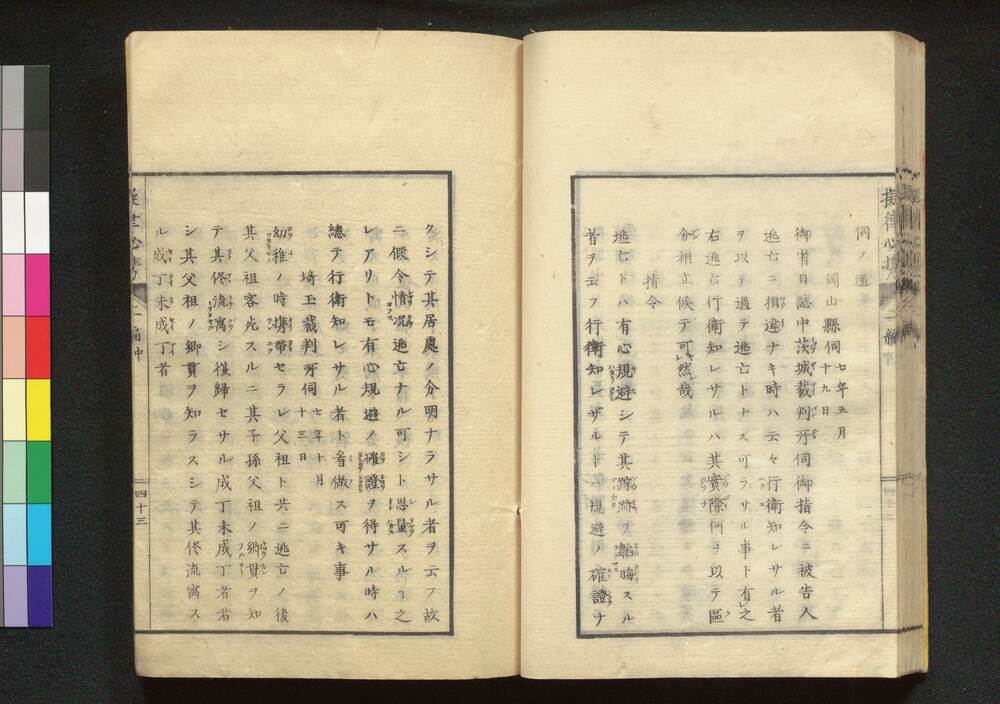 伺ノ通
岡山縣伺 七年五月十九日
御省日誌中茨城裁判所伺御指令ニ被告人
逃亡ニ相違ナキ時ハ云々行衛知レサル者
ヲ以テ過テ逃亡トナス可ラサル事ト有之
右逃亡行衛知レサルハ其實際何ヲ以テ區
分相立候テ可然哉
指令
逃亡トハ有心規避シテ其踪跡ヲ韜晦スル
者ヲ云フ行衛知レザルトハ規避ノ確證ナ
クシテ其居處ノ分明ナラサル者ヲ云フ故
ニ假令情況逃亡ナル可シト思量スルヿ之
レアリトモ有心規避ノ確證ヲ得サル時ハ
總テ行衛知レサル者ト看做ス可キ事
埼玉裁判所伺 七年十月十三日
幼稚ノ時携帶セラレ父祖ト共ニ逃亡ノ後
其父祖客死スルニ其子孫父祖ノ郷貫ヲ知
テ其侭流寓シ復歸セサル成丁未成丁者若
シ其父祖ノ郷貫ヲ知ラスシテ其侭流寓ス
ル成丁未成丁者
四十三